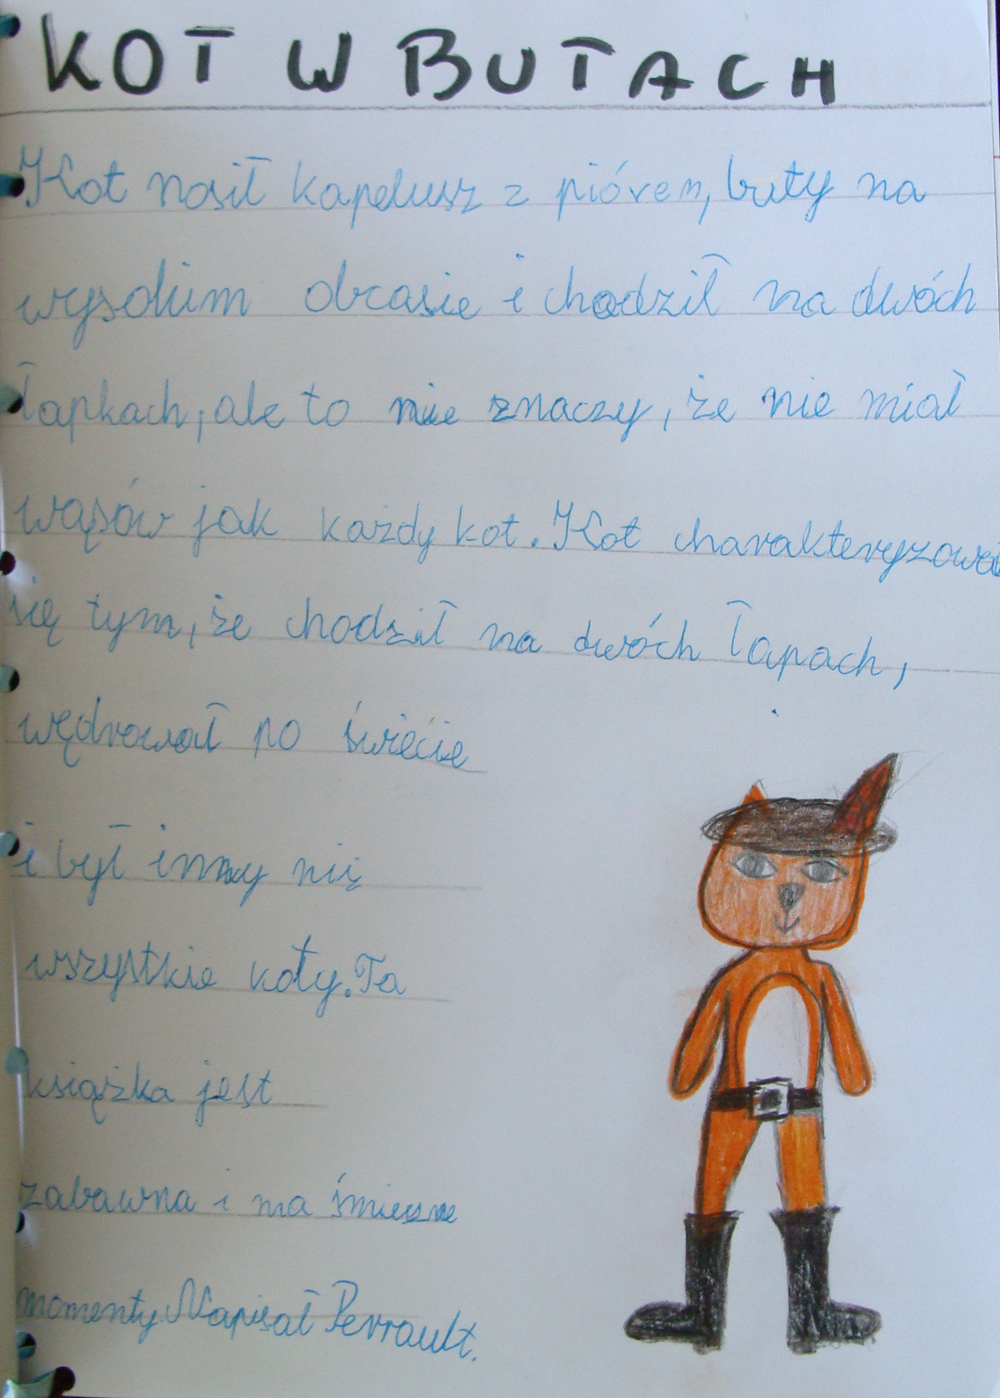 KOT W BUTACH
Kot nosił kapelusz z piórem, buty na
wysokim obcasie i chodził na dwóch
łapkach, ale to nie znaczy, że nie miał
wąsów jak każdy kot. Kot charakteryzował
się tym, że chodził na dwóch łapach,
wędrował po świecie
i był inny niż
wszystkie koty. Ta
książka jest
zabawna i ma śmieszne
momenty. Napisał Perrault.